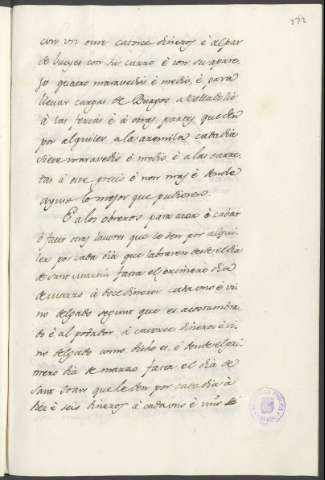 272
con vn ome catorce dineros è al par
de bueyes con su carro è con su apare-
jo quatro maravedis è medio, è para
llevar cargas de Burgos a Valladolid
à las ferias è à otras partes, que den
por alquiler a la azemila cada dia
siete maravedis è medio, è a las carre-
tas à este precio è non mas è dende
ayuso lo mejor que pudieren.
E a los obreros para arar ò cabar
ò facer otras lavores que les den por alqui-
ler por cada dia que labraren desde el dia
de Sant Martin fasta el primero dia
de marzo à doce dineros cada uno è vi-
no delgado segunt que es acostumbra-
do è al podador à catorce dineros è vi-
no delgado como dicho es, è dende el pri-
mero dia de marzo fasta el dia de
Sant Joan que le den por cada dia à
diez è seis dineros à cada uno è vino de